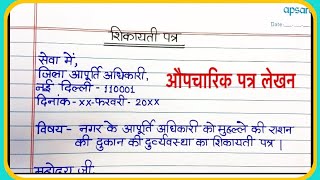 apsar
Date:
शिकायती पत्र
सेवा में,
जिला आपूर्ति अधिकारी,
नई दिल्ली - 110001
दिनांक - xx-फरवरी - 20xx
औपचारिक पत्र लेखन
विषय - नगर के आपूर्ति अधिकारी को मुहल्ले की राशन
की दुकान की दुर्व्यवस्था का शिकायती पत्र |
महोदय जी,